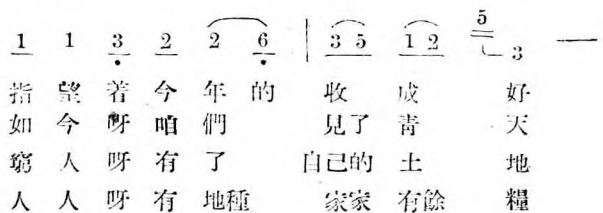 1 1 3 2 2 6 | 3 5 1 2 5 3 —
指望着今年的 收成 好
如今呀咱們 見了青 天
窮人呀有了 自己的土 地
人人呀有地種 家家有餘 糧